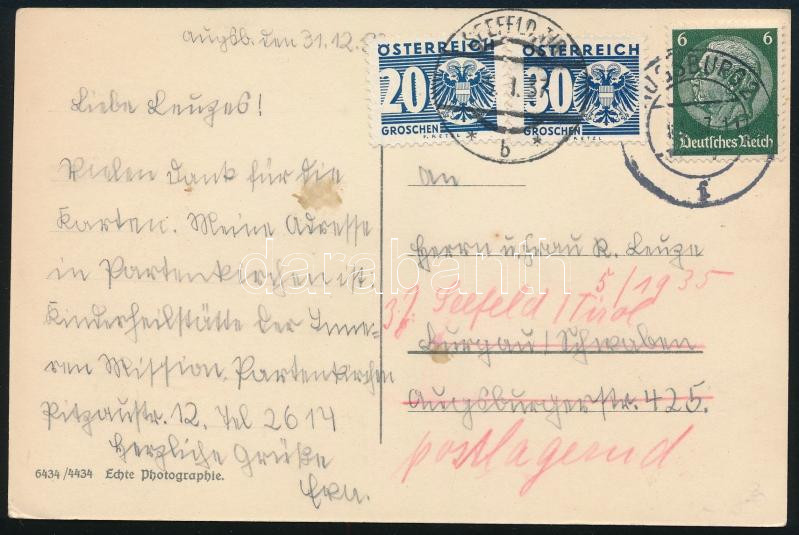 Augsb. den 31.12.
Liebe Leuzes!
Vielen Dank für die
Karten. Meine Adresse
in Partenkirchen ist:
Kinderheilstätte der Inne-
ren Mission. Partenkirchen
Pitzaustr. 12. Tel 2614
Herzliche Grüße
6434/4434 Echte Photographie.
ÖSTERREICH
20
GROSCHEN
ÖSTERREICH
30
GROSCHEN
SEEFELD, TIROL
1.37
* b *
6 6
Deutsches Reich
AUGSBURG 2
f
An
Herrn u. Frau R. Leuze
5/1935
Seefeld/Tirol
Burgau/Schwaben
Augsburgerstr. 425.
postlagernd
darabanth